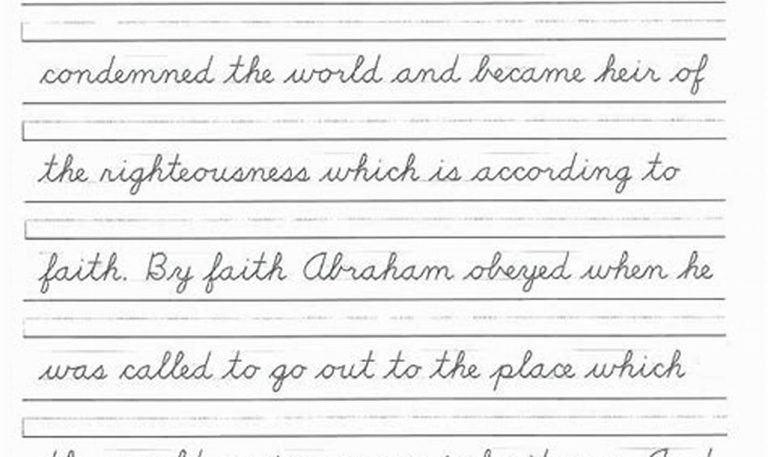 condemned the world and became heir of
the righteousness which is according to
faith. By faith Abraham obeyed when he
was called to go out to the place which